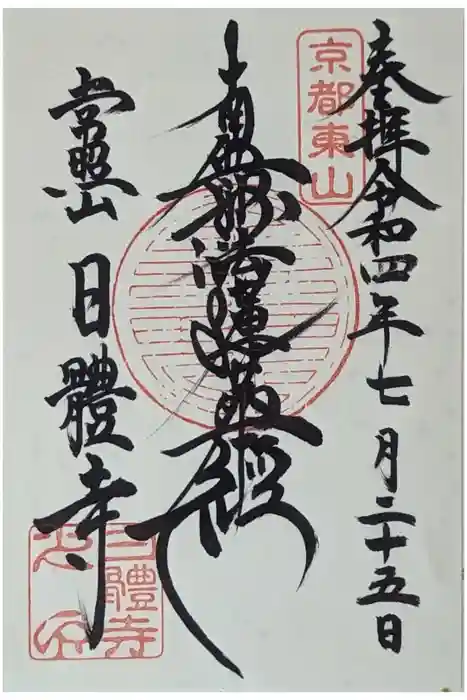 奉拝 令和四年七月二十五日
京都東山
南無妙法蓮華経
常照山 日體寺
日體寺